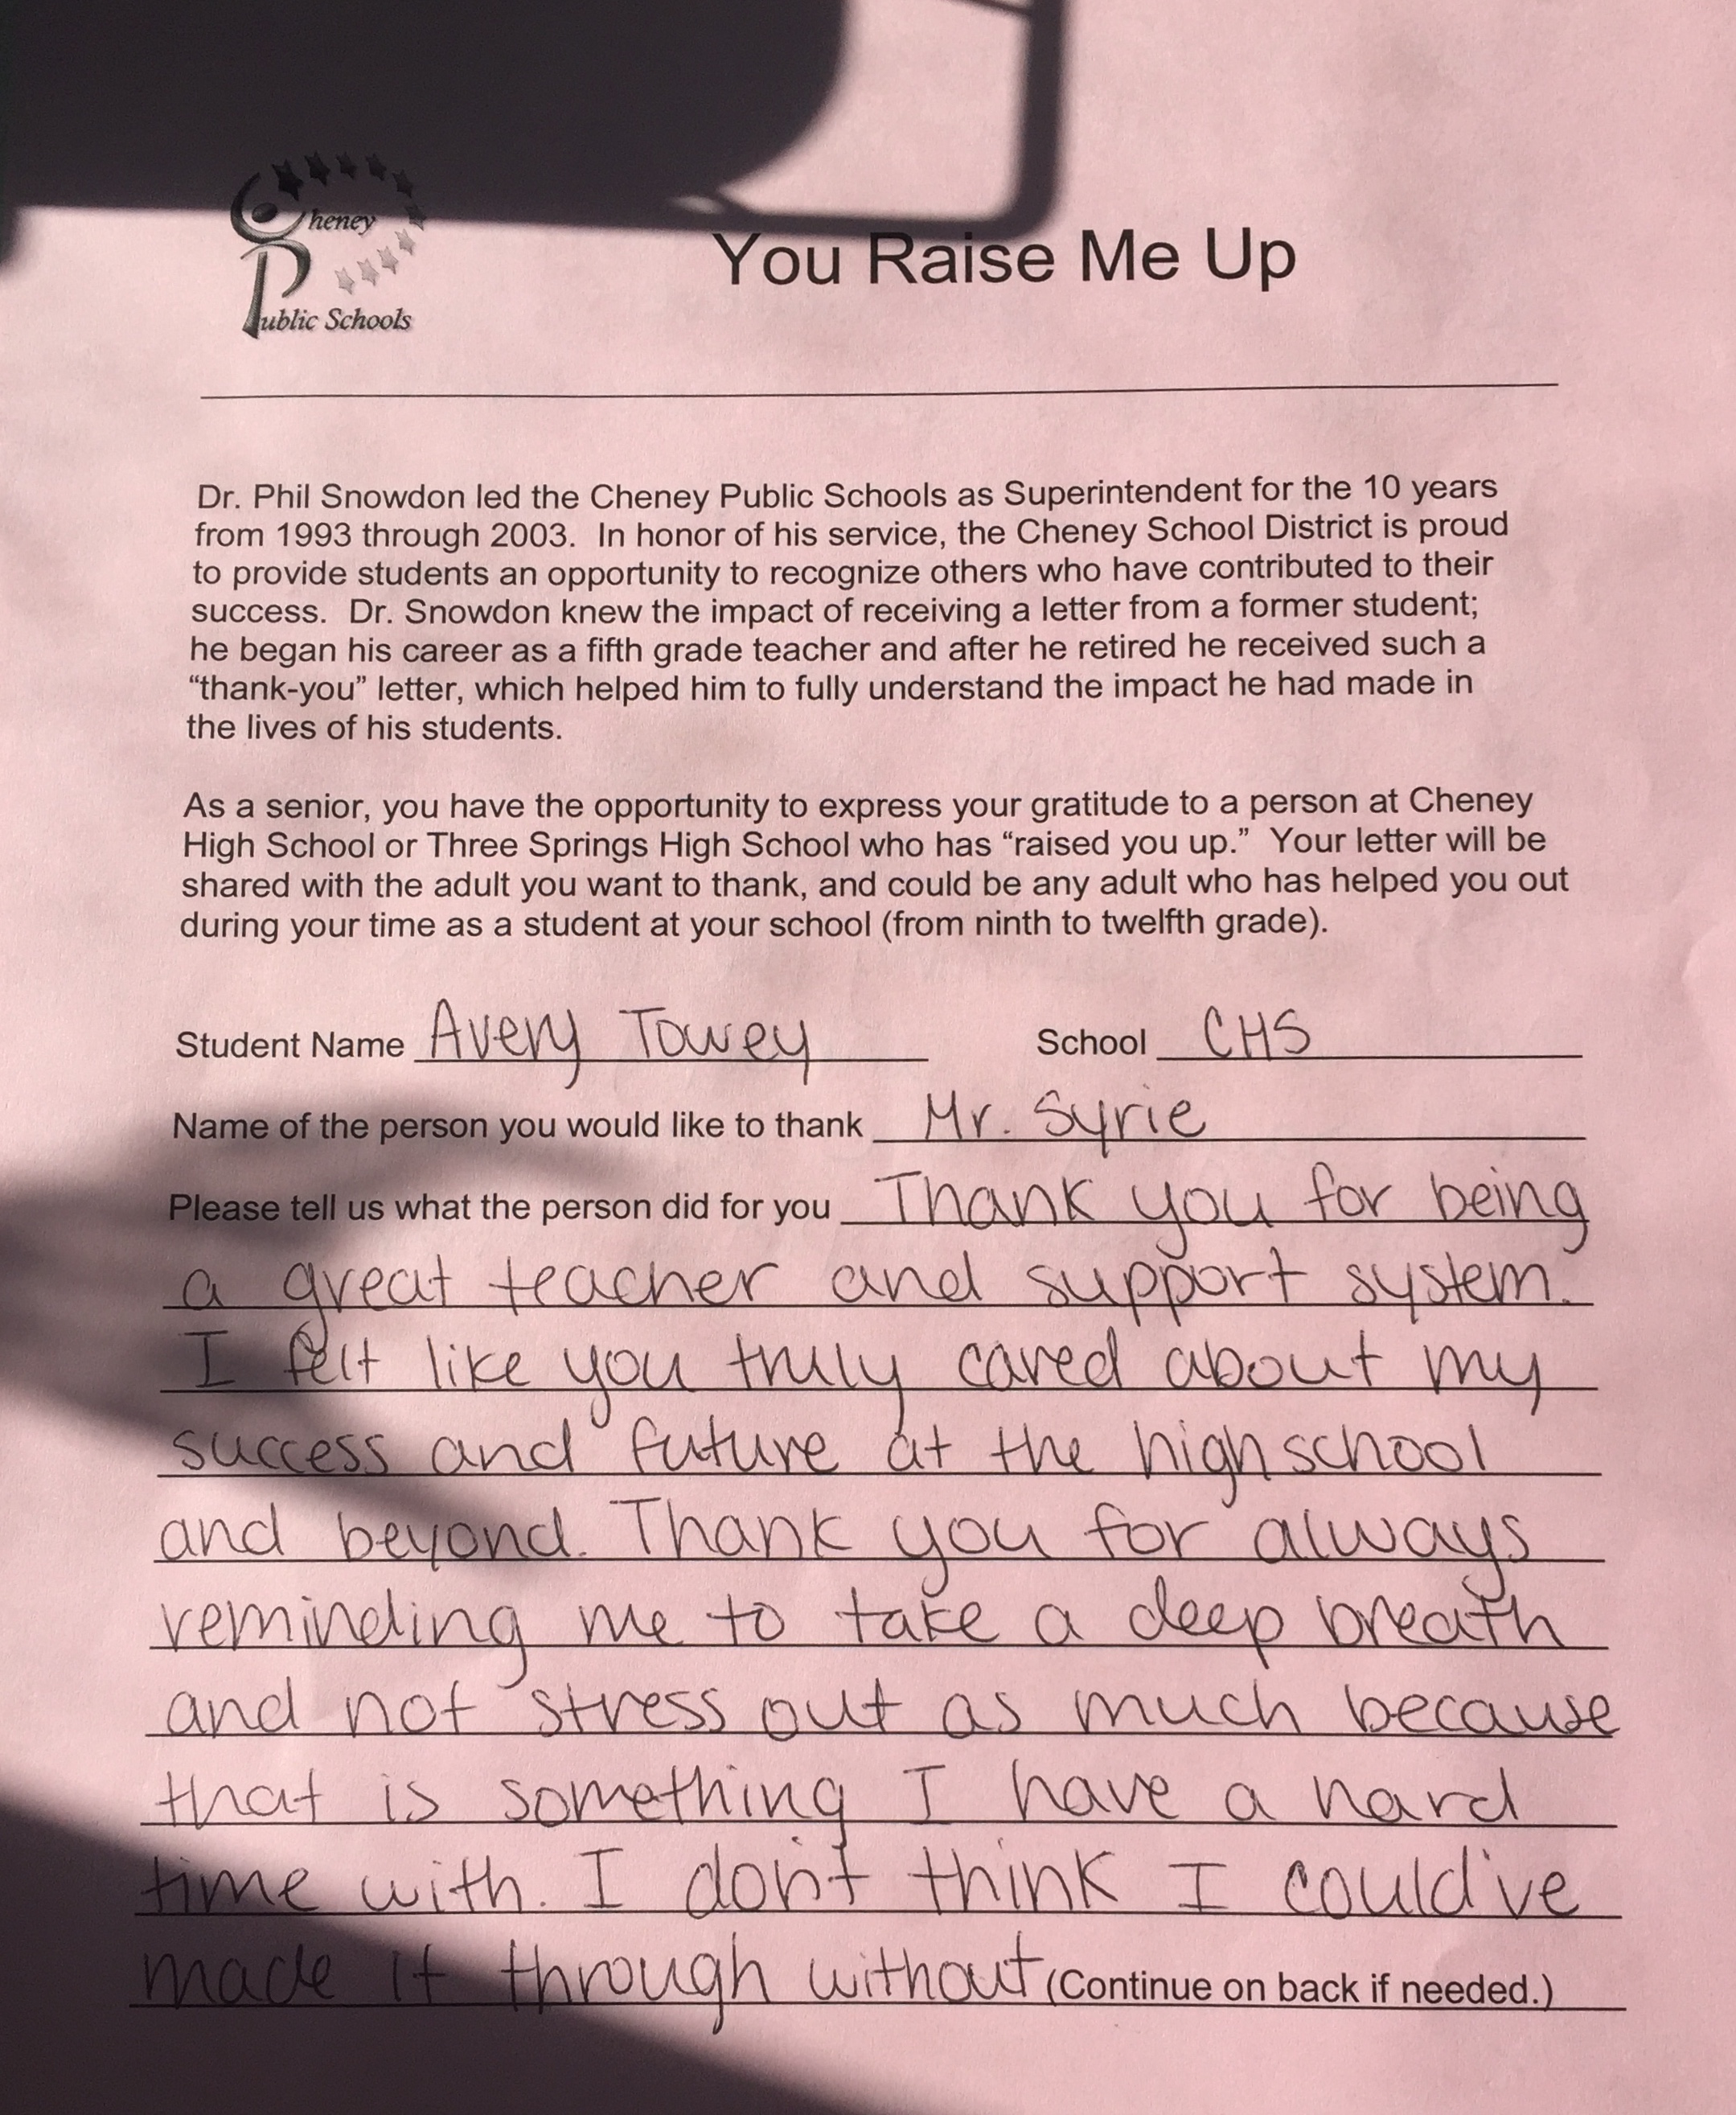 Cheney
Public Schools
You Raise Me Up
Dr. Phil Snowdon led the Cheney Public Schools as Superintendent for the 10 years
from 1993 through 2003.  In honor of his service, the Cheney School District is proud
to provide students an opportunity to recognize others who have contributed to their
success.  Dr. Snowdon knew the impact of receiving a letter from a former student;
he began his career as a fifth grade teacher and after he retired he received such a
“thank-you” letter, which helped him to fully understand the impact he had made in
the lives of his students.
As a senior, you have the opportunity to express your gratitude to a person at Cheney
High School or Three Springs High School who has “raised you up.”  Your letter will be
shared with the adult you want to thank, and could be any adult who has helped you out
during your time as a student at your school (from ninth to twelfth grade).
Student Name Avery Towey School CHS
Name of the person you would like to thank Mr. Syrie
Please tell us what the person did for you Thank you for being
a great teacher and support system.
I felt like you truly cared about my
success and future at the highschool
and beyond. Thank you for always
reminding me to take a deep breath
and not stress out as much because
that is something I have a hard
time with. I don't think I could've
made it through without (Continue on back if needed.)